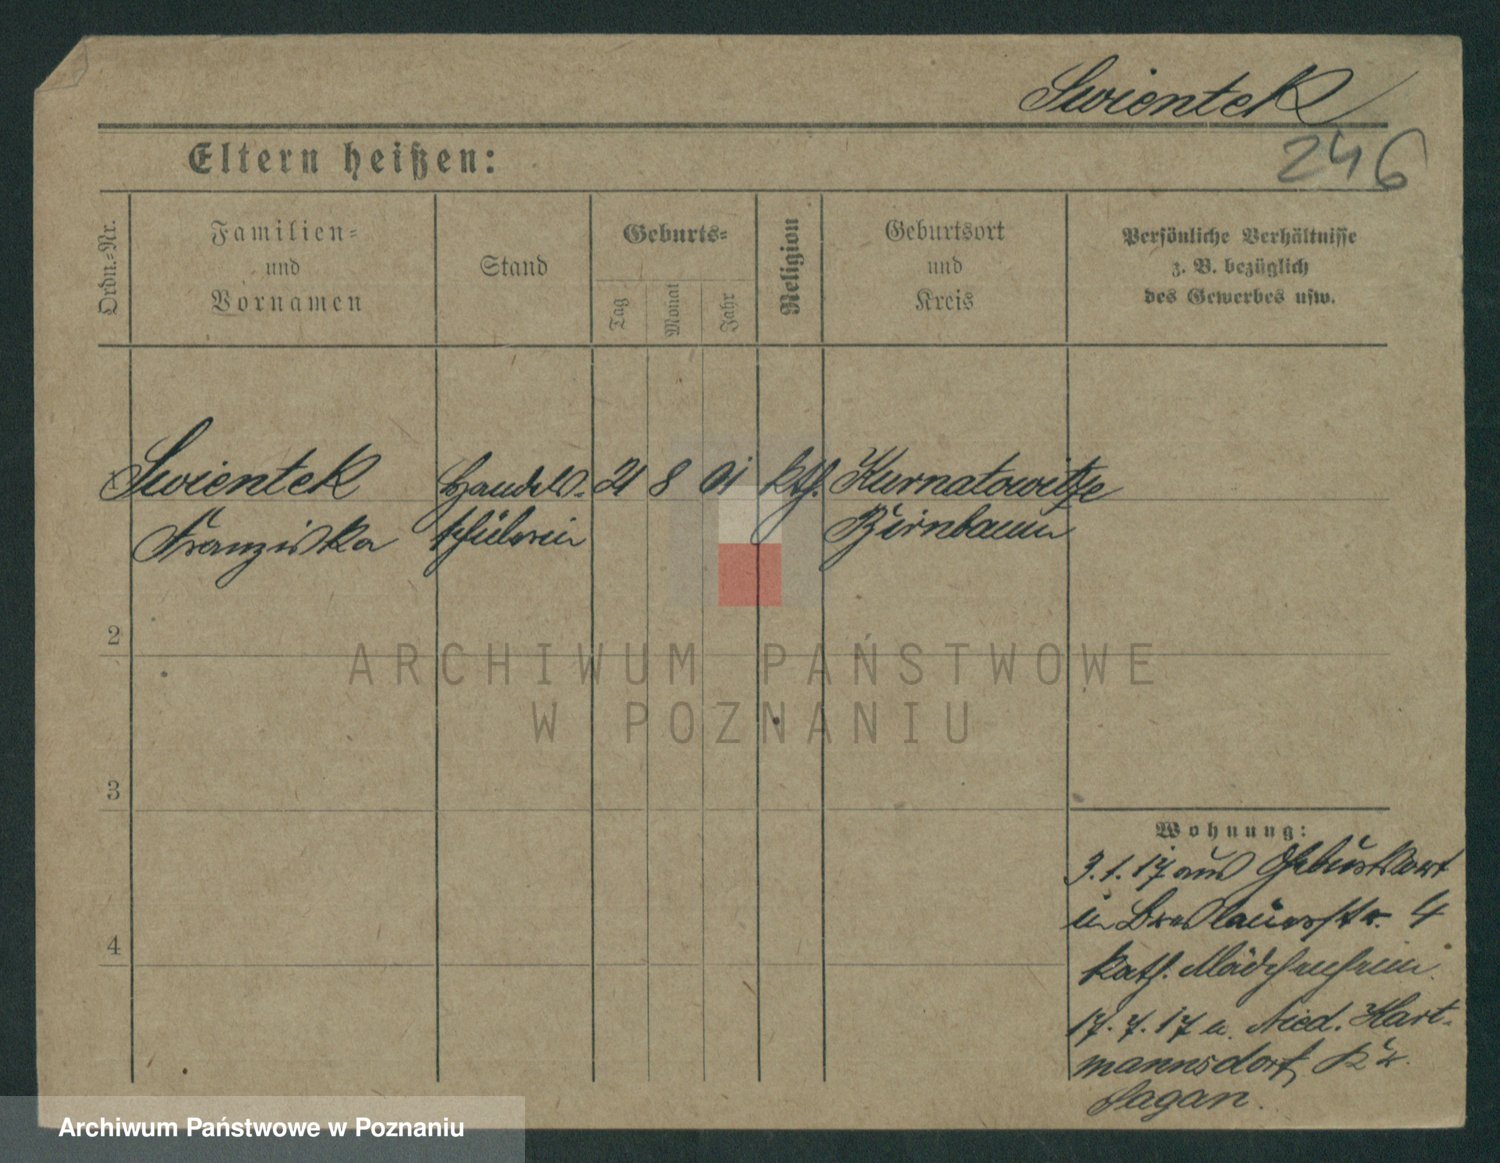 Swientek
246
Eltern heißen:
Ordn.-Nr.
Familien-
und
Vornamen
Stand
Geburts-
Tag
Monat
Jahr
Religion
Geburtsort
und
Kreis
Persönliche Verhältnisse
z. B. bezüglich
des Gewerbes usw.
Swientek Handels- 21 8 01 kth. Kurnatowitze
Franziska schülerin Birnbaum
2
3
4
Wohnung:
3.1.17 aus Geburtsort
in Breslauerstr. 4
kath. Mädchenheim.
17.7.17 n. Nied. Hart-
mannsdorf, Kr.
Sagan.
ARCHIWUM PAŃSTWOWE
W POZNANIU
Archiwum Państwowe w Poznaniu